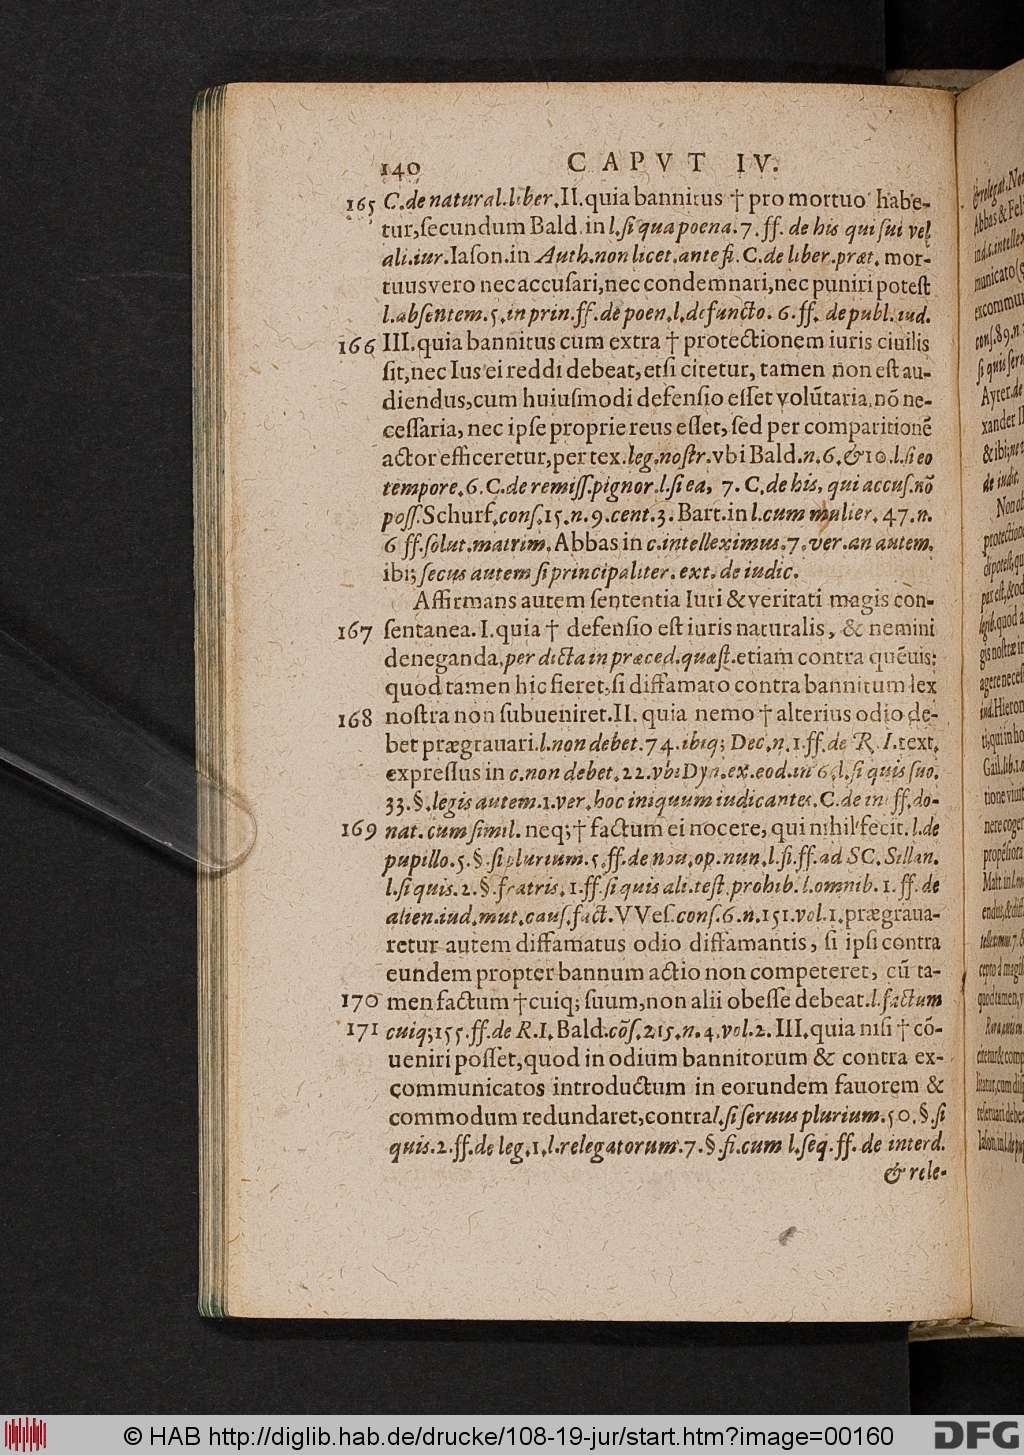 140 CAPVT IV.
165 C. de natural. liber. II. quia bannitus † pro mortuo habe-
tur, secundum Bald. in l. si qua poena. 7. ff. de his qui sui vel
ali. iur. Iason. in Auth. non licet. ante fi. C. de liber. præt. mor-
tuus vero nec accusari, nec condemnari, nec puniri potest
l. absentem. 5. in prin. ff. de poen. l. defuncto. 6. ff. de publ. iud.
166 III. quia bannitus cum extra † protectionem iuris ciuilis
sit, nec Ius ei reddi debeat, etsi citetur, tamen non est au-
diendus, cum huiusmodi defensio esset volūtaria, nō ne-
cessaria, nec ipse proprie reus esset, sed per comparitionē
actor efficeretur, per tex. leg. nostr. vbi Bald. n. 6. & 10. l. si eo
tempore. 6. C. de remiss. pignor. l. si ea, 7. C. de his, qui accus. nō
poss. Schurf. cons. 15. n. 9. cent. 3. Bart. in l. cum mulier. 47. n.
6 ff. solut. matrim. Abbas in c. intelleximus. 7. ver. an autem.
ibi; secus autem si principaliter. ext. de iudic.
Affirmans autem sententia Iuri & veritati magis con-
167 sentanea. I. quia † defensio est iuris naturalis, & nemini
deneganda, per dicta in præced. quæst. etiam contra quēuis:
quod tamen hic fieret, si diffamato contra bannitum lex
168 nostra non subueniret. II. quia nemo † alterius odio de-
bet prægrauari. l. non debet. 74. ibiq; Dec. n. 1. ff. de R. I. text.
expressus in c. non debet. 22. vbi Dyn. ex. eod. in 6. l. si quis suo.
33. §. legis autem. 1. ver. hoc iniquum iudicantes. C. de in ff. do-
169 nat. cum simil. neq; † factum ei nocere, qui nihil fecit. l. de
pupillo. 5. §. si plurium. 5. ff. de nou. op. nun. l. si. ff. ad SC. Sillan.
l. si quis. 2. §. fratris. 1. ff. si quis ali. test. prohib. l. omnib. 1. ff. de
alien. iud. mut. caus. fact. VVes. cons. 6. n. 151. vol. 1. prægraua-
retur autem diffamatus odio diffamantis, si ipsi contra
eundem propter bannum actio non competeret, cū ta-
170 men factum † cuiq; suum, non alii obesse debeat. l. factum
171 cuiq; 155. ff. de R. I. Bald. cōs. 215. n. 4. vol. 2. III. quia nisi † cō-
ueniri posset, quod in odium bannitorum & contra ex-
communicatos introductum in eorundem fauorem &
commodum redundaret, contra l. si seruus plurium. 50. §. si
quis. 2. ff. de leg. 1. l. relegatorum. 7. §. fi. cum l. seq. ff. de interd.
& rele-
© HAB http://diglib.hab.de/drucke/108-19-jur/start.htm?image=00160
DFG